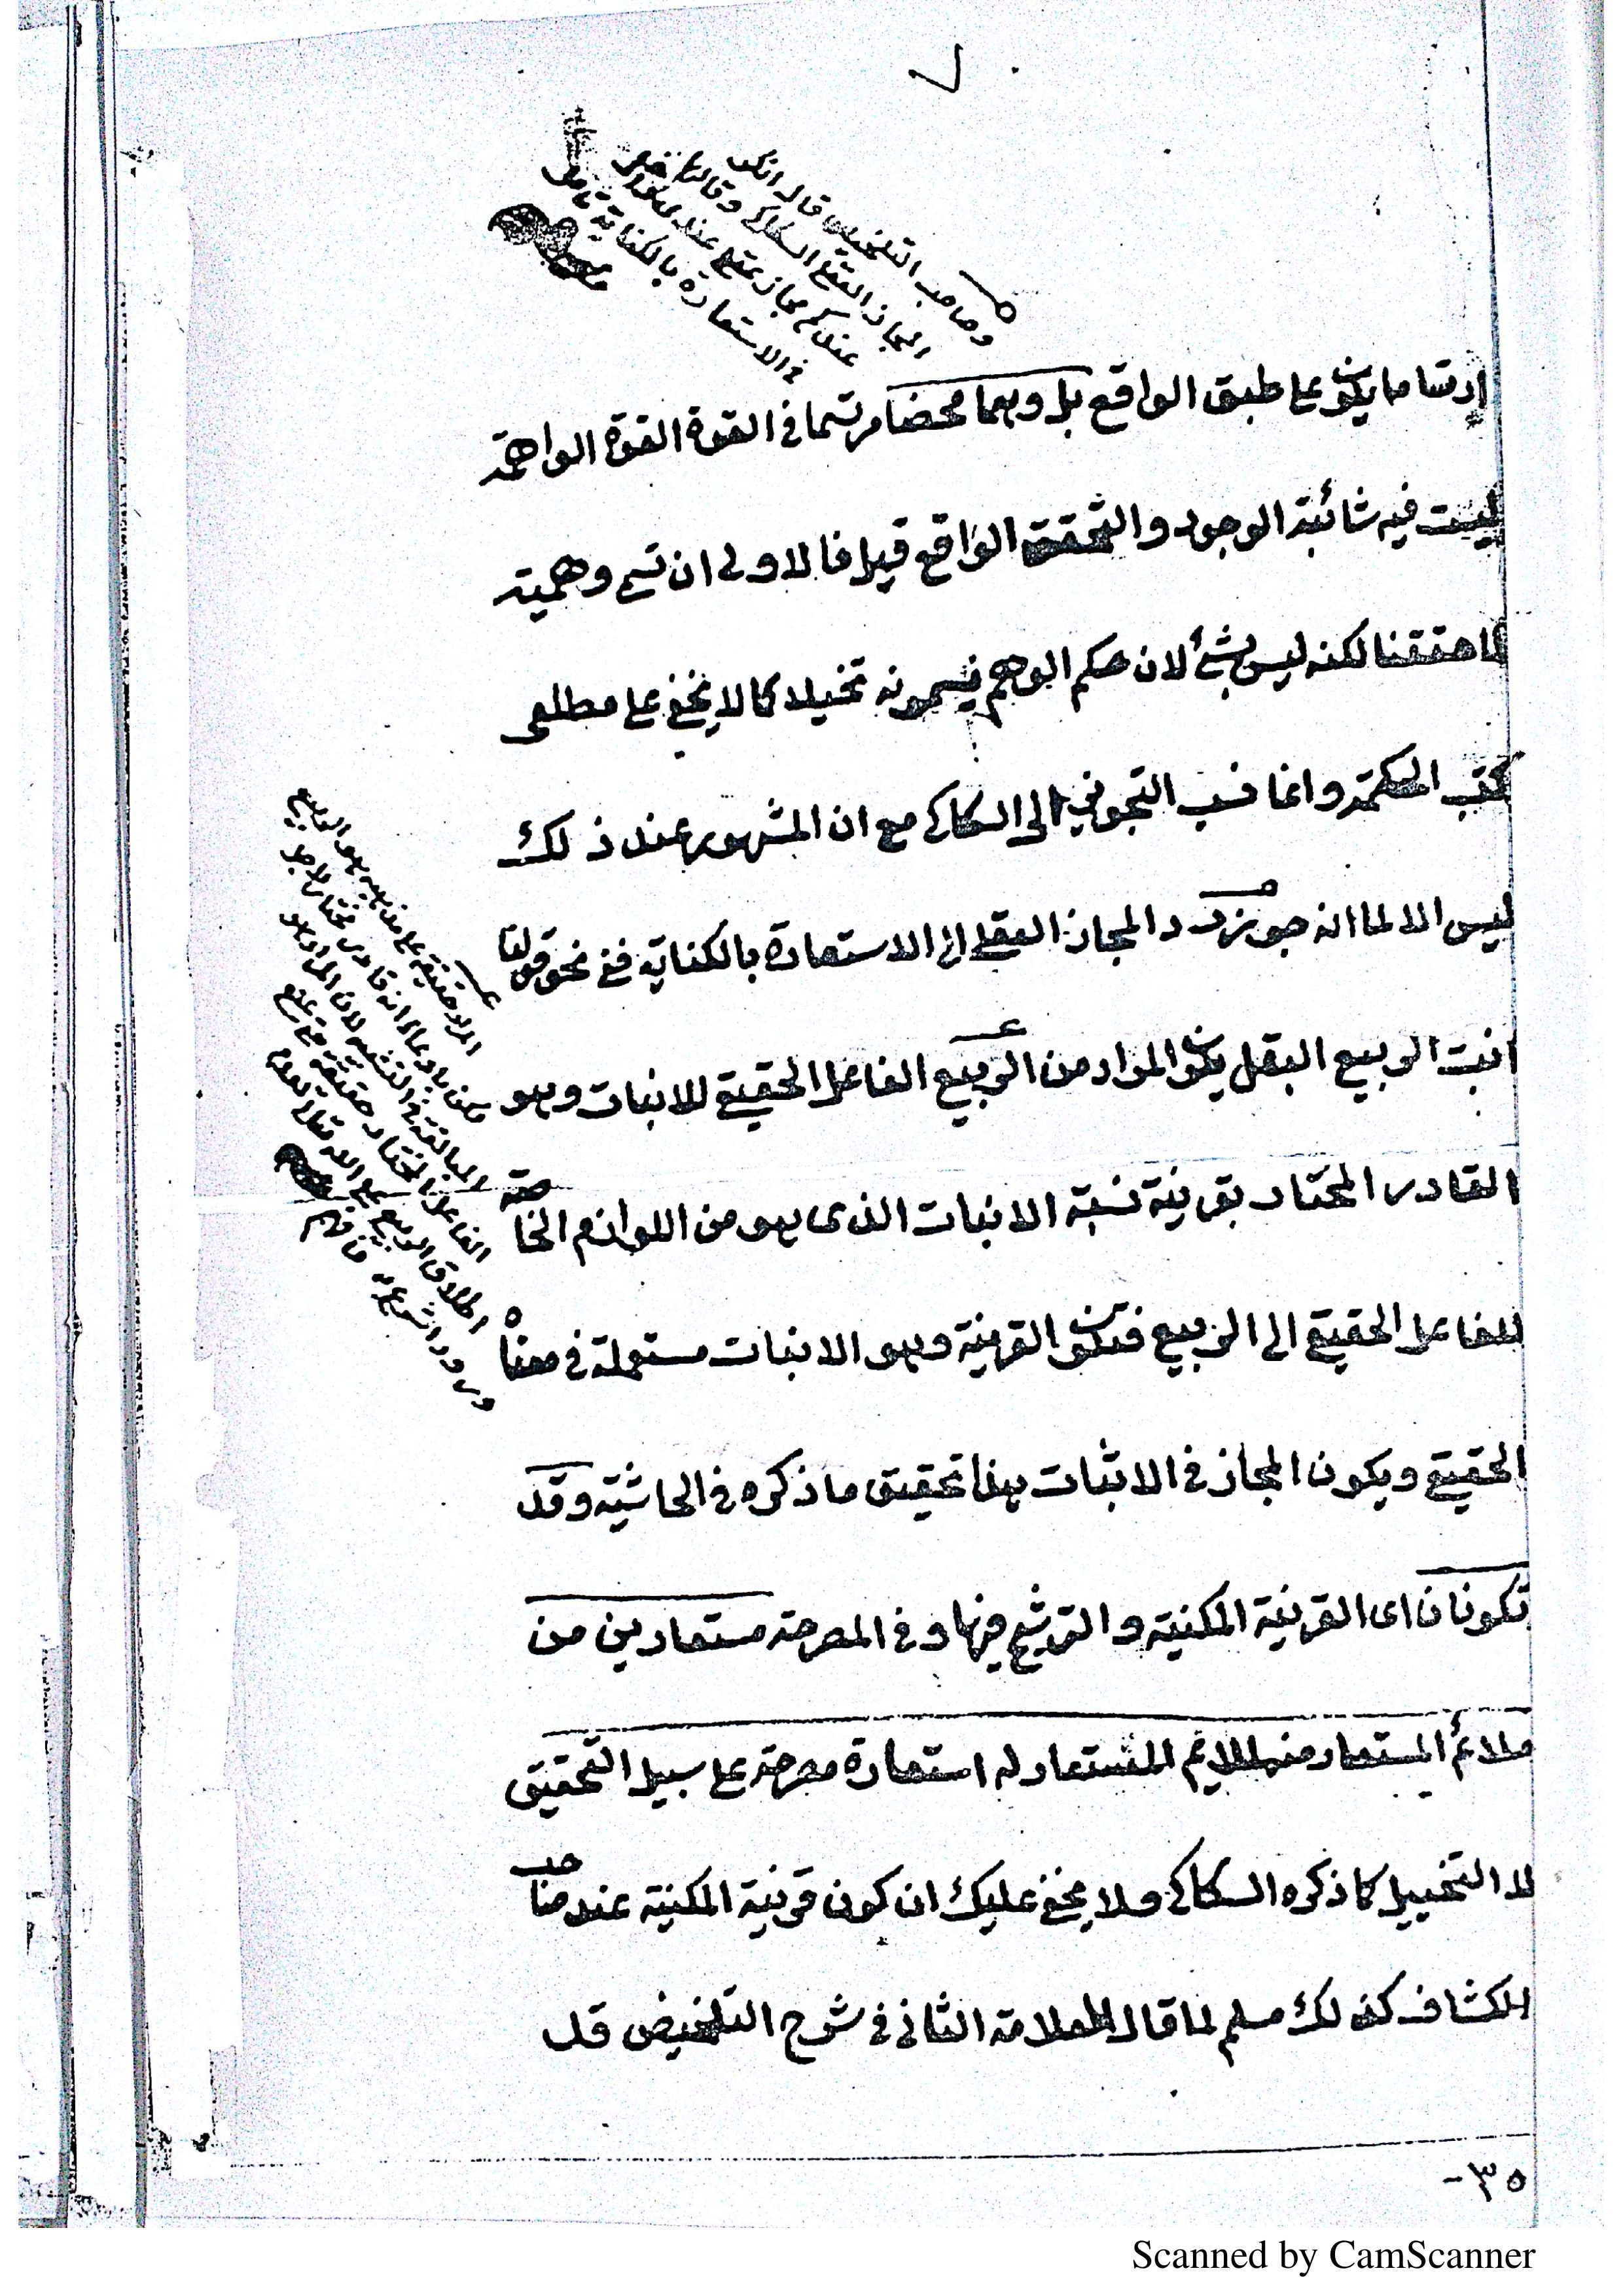 ارتساما يكون على طبق الواقع بل وهما محضا مرتسما في القوة القوة الواهمة
ليست فيه شائبة الوجود والتحقق الواقع قيل فالاولى ان تسمى وهمية
لما حققنا لكنه ليس بشئ لان حكم الوهم فيسمونه تخيلا كما لا يخفى على مطلعى
كتب الحكمة وانما نسب التجويز الى السكاكى مع ان المشهور عند ذلك
ليس الا لما انه جوز رد المجاز العقلى الى الاستعارة بالكناية ففى نحو قولنا
انبت الربيع البقل يكون المراد من الربيع الفاعل الحقيقى للانبات وهو
القادر المختار بقرينة نسبة الانبات الذى هو من اللوازم الخاصة
للفاعل الحقيقى الى الربيع فتكون القرينة وهو الانبات مستعملة فى معناه
الحقيقى ويكون المجاز فى الاثبات هذا تحقيق ما ذكره فى الحاشية وقد
تكونان اى القرينة المكنية والترشيح فيها وفى المصرحة مستعارين من
ملائم المستعار منه لملايم المستعار له استعارة مصرحة على سبيل التحقيق
لا التخييل كما ذكره السكاكى ولا يخفى عليك ان كون قرينة المكنية عند صاحب
الكشاف كذلك مسلم لما قال العلامة الثانى فى شرح التلخيص قد
وصاحب التلخيص قال انكر
المجاز العقلى السكاكى وقال
عندكم مجاز عقلى عندى
فى الاستعارة بالكناية
المراد حقيقة على مذهبه هو الربيع
لكن بادعاء انه قادر مختار لاجل
المبالغة فى التشبيه لان المراد هو
الفاعل المختار حقيقة حتى يمتنع
اطلاق الربيع على الله تعالى لعدم
ورود الشرع به فافهم
٣٥-
Scanned by CamScanner